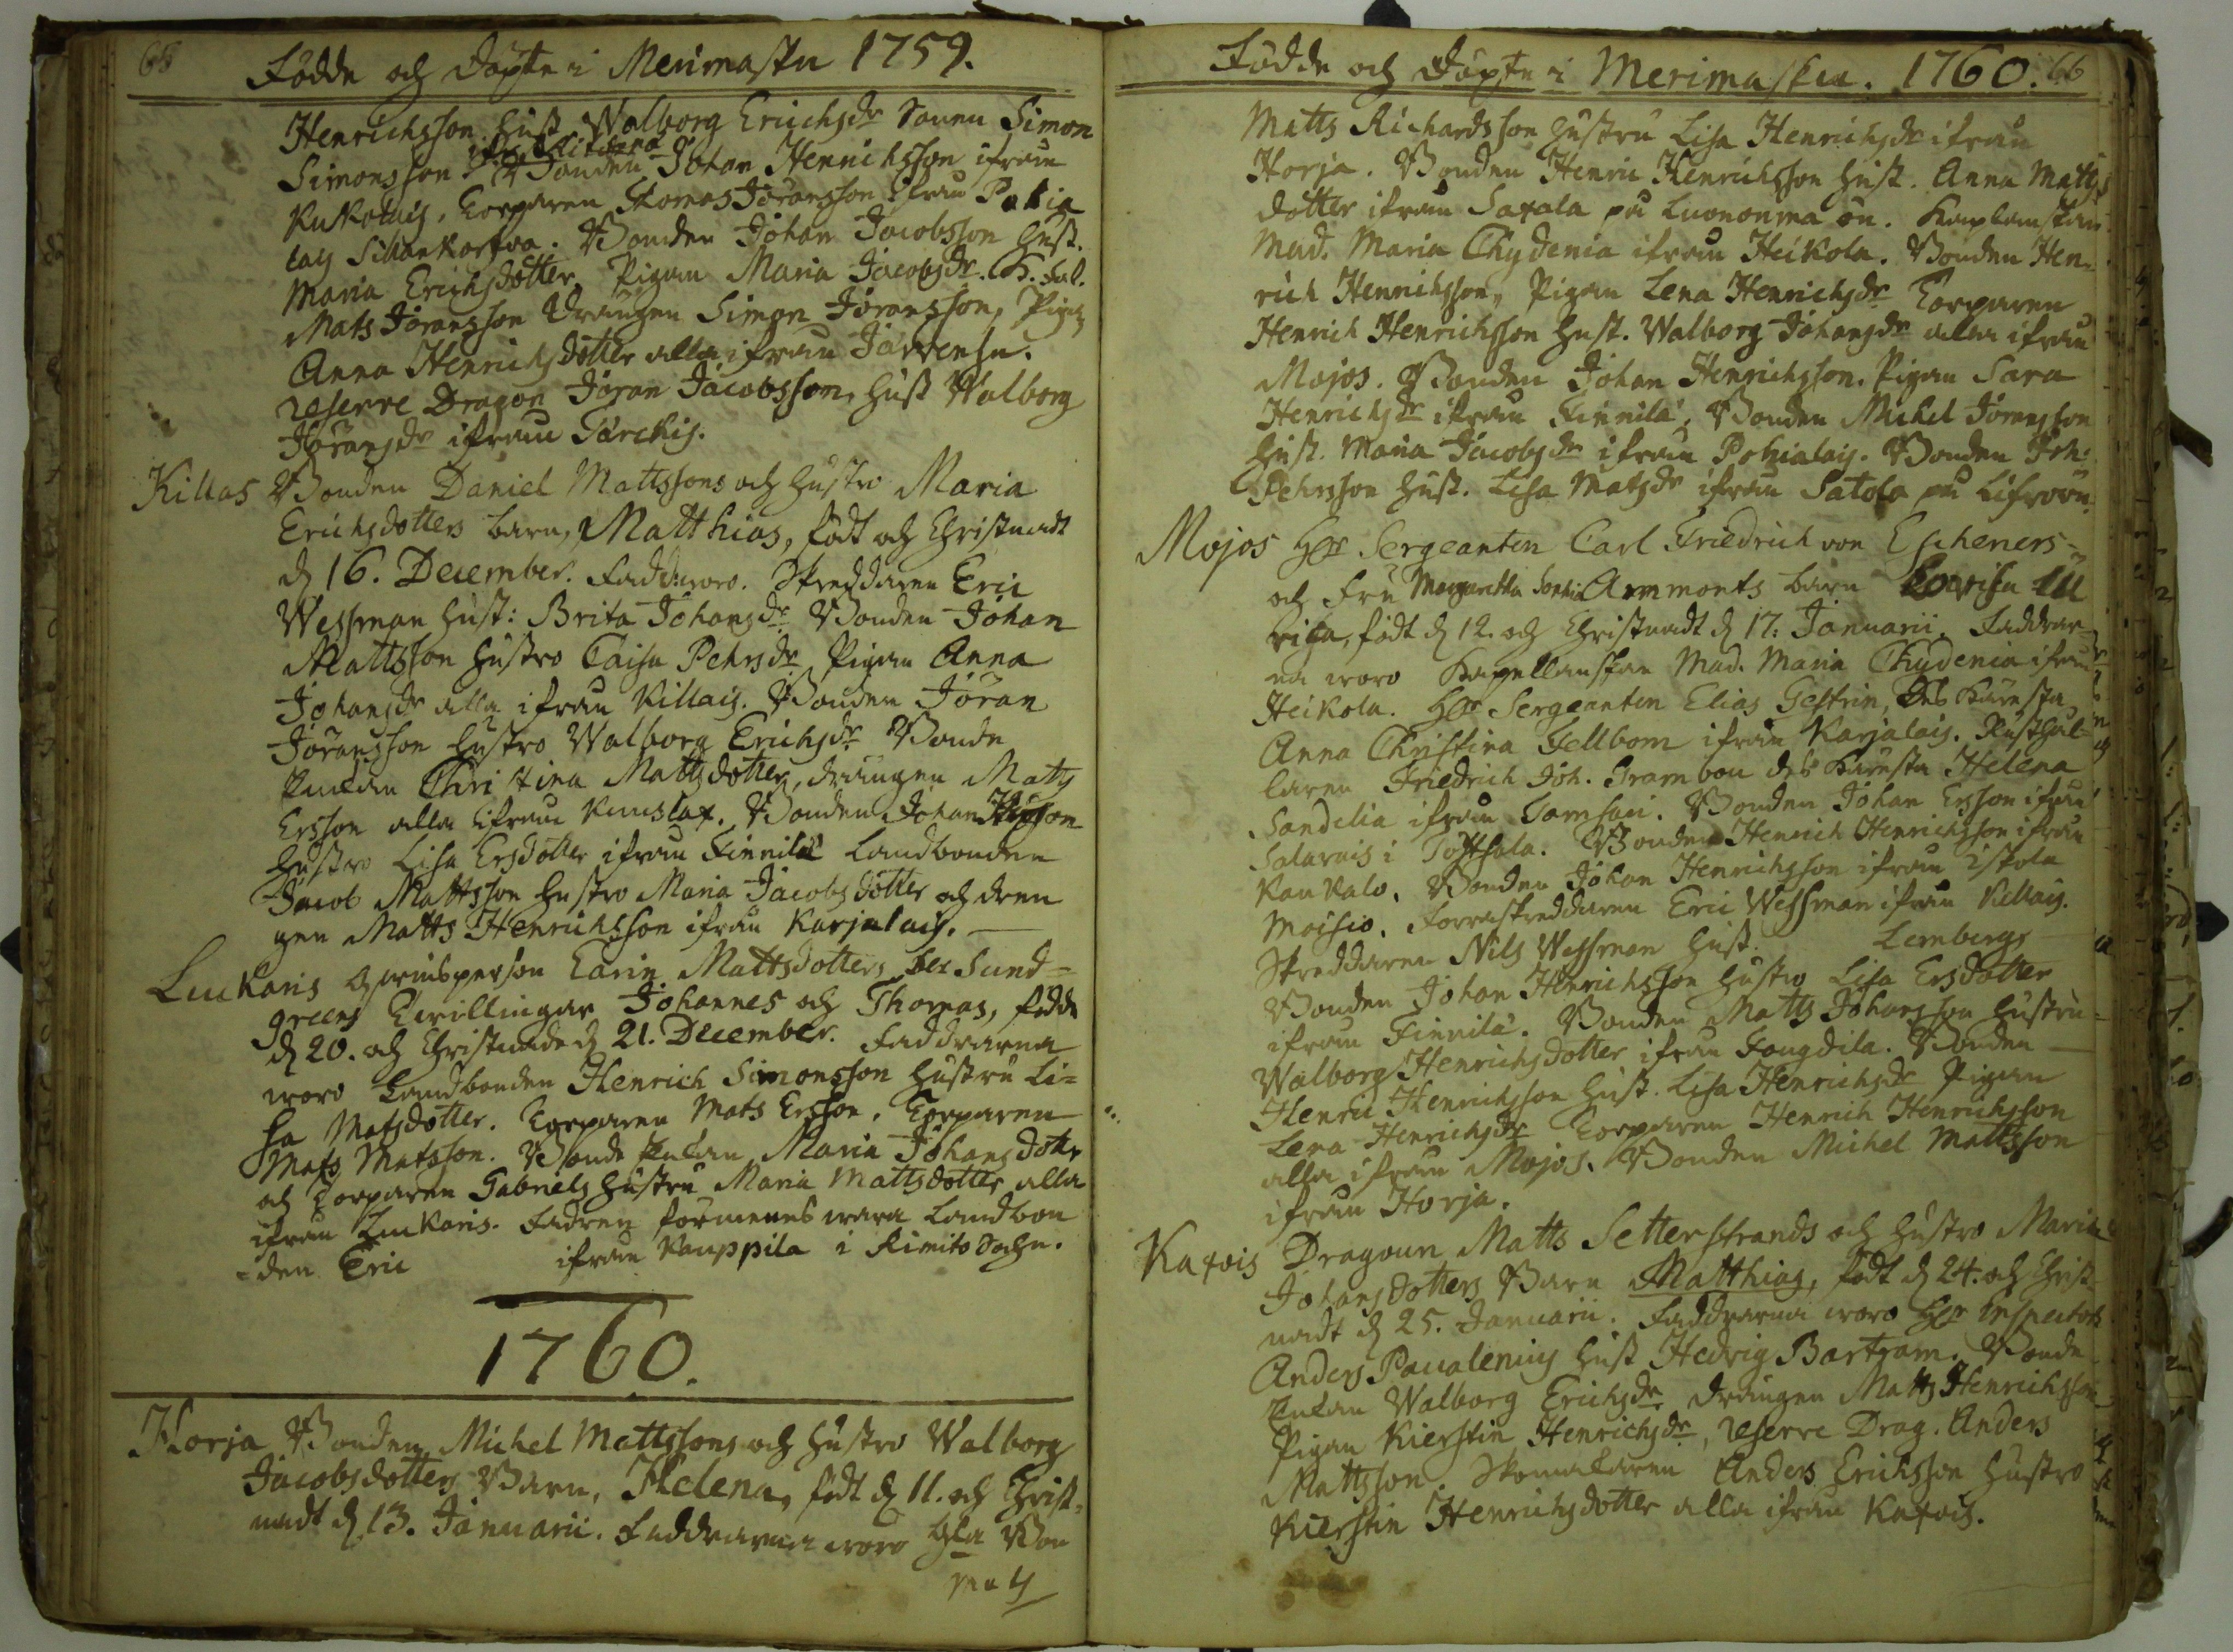 65
Födde och Döpte i Merimasku 1759.
Henrichsson hust. Walborg Erichsdr Sonen Simon
Simonsson ifr. Bonden Johan Henrichsson ifrån
Kukolais, Torparen Thomas Jöransson ifrån Pohia
lais. Bonden Johan Jacobsson Hust.
Maria Erichsdotter, Pigan Maria Jacobsdr.
Mats Jöransson Drängen Simon Jöransson, Pig.
Anna Henrichsdotter alla ifrån Järvensu.
reserve Dragon Jöran Jacobsson, hust Walborg
Jöransdr ifrån Tärckis.
Killais Bonden Daniel Mattssons och hustro Maria
Erichsdotters barn, Matthias, födt och Christnadt
d 16. December. Fadd: woro. Skreddaren Eric
Wessman hust: Brita Johansdr. Bonden Johan
Mattsson hustro Caisa Pehrsdr Pigan Anna
Johansdr alla ifrån Killais. Bonden Jöran
Jöransson hustro Walborg Erichsdr Bonde
Enkan Christina Mattsdotter, drängen Matts
Ersson alla ifrån Kunslax. Bonden Johan
hustro Lisa Ersdotter ifrån Finnilä Landbonden
Jacob Mattsson hustro Maria Jacobsdotter och dren
gen Matts Henrichsson ifrån Karjalais.
Luckaris Qwinsperson Carin Mattsdotters
Twillingar Johannes och Thomas, födde
d 20. och Christnade d 21. December. Faddrarna
woro Landbonden Henrich Simonsson hustru Li=
sa Matsdotter. Torparen Mats Ersson. Torparen
Mats Matsson. Bonde Enkan Maria Johansdotter
och Torparen Gabriels hustru Maria Mattsdotter alla
ifrån Luckaris. Fadren förmenes wara Landbon
=den Eric ifrån Kauppila i Rimito Sochn.
1760.
Horja Bonden Michel Mattssons och hustro Walborg
Jacobsdotters Barn, Helena, födt d 11. och Christ=
nadt d 13. Januarii. Faddrarna woro Bon
Matts
Födde och Döpte i Merimasku. 1760. 66
Matts Richardsson hustru Lisa Henrichsdr ifrån
Horja. Bonden Henric Henrichsson hust. Anna Matts
dotter ifrån Saxala på Luononma ön. Kaplanskan
Mad. Maria Chydenia ifrån Heikola. Bonden Hen=
rich Henrichsson, Pigan Lena Henrichsdr Torparen
Henrich Henrichsson hust. Walborg Johansdr alla ifrån
Mojos. Bonden Johan Henrichsson. Pigan Sara
Henrichsdr ifrån Finnilä. Bonden Michel Jöransson
hust. Maria Jacobsdr ifrån Pohialais. Bonden Joh:
Pehrsson hust. Lisa Matsdr ifrån Satola på
Mojos Herr Sergeanten Carl Friedrich von Escheners=
och Fru Margaretha Sophia Ammonts barn Lovisa Ul
rica, födt d 12. och Christnadt d 17. Januarii. Faddrar=
na woro Kapellanskan Mad. Maria Chydenia ifrån
Heikola. Herr Sergeanten Elias Gestrin, Des Käresta
Anna Christina Fellbom ifrån Karjalais. Rusthål=
laren Friedrich Joh. Granbon des Käresta Helena
Sandelia ifrån Samsari. Bonden Johan Ersson ifrån
Salavais i Töfsala. Bonden Henrich Henrichsson ifrån
Kaukalo. Bonden Johan Henrichsson ifrån Isola
Moisio. Sockneskreddaren Eric Wessman ifrån Killais.
Skreddaren Nils Wessman hust. Lemberg,
Bonden Johan Henrichsson hustro Lisa Ersdotter
ifrån Finnilä. Bonden Matts Johansson hustru
Walborg Henrichsdotter ifrån Fougdila. Bonden
Henric Henrichsson hust. Lisa Henrichsdr Pigan
Lena Henrichsdr Torparen Henrich Henrichsson
alla ifrån Mojos. Bonden Michel Mattsson
ifrån Horja.
Kaxois Dragoun Matts Setterstrands och hustro Maria
Johansdotters Barn Matthias, födt d 24. och Christ=
nadt d 25. Januarii. Faddrarna woro Herr Inspectoren
Anders Pacalenius hust Hedvig Bartram. Bonde
Enkan Walborg Erichsdr. drängen Matts Henrichsson
Pigan Kierstin Henrichsdr, reserve Drag. Anders
Mattsson. Skomakaren Anders Erichsson hustro
Kierstin Henrichsdotter alla ifrån Kaxois.